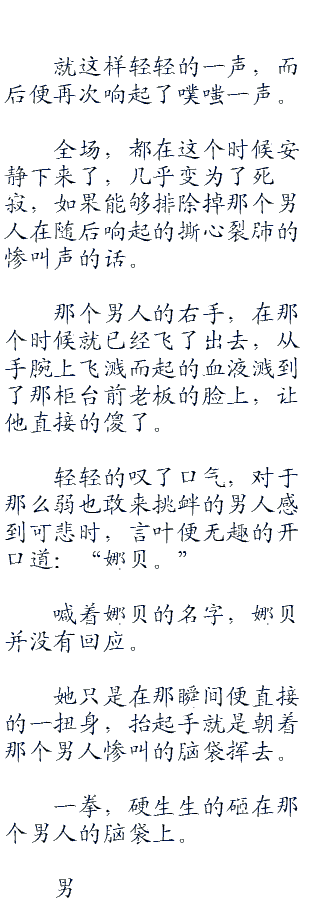 就这样轻轻的一声，而
后便再次响起了噗嗤一声。
全场，都在这个时候安
静下来了，几乎变为了死
寂，如果能够排除掉那个男
人在随后响起的撕心裂肺的
惨叫声的话。
那个男人的右手，在那
个时候就已经飞了出去，从
手腕上飞溅而起的血液溅到
了那柜台前老板的脸上，让
他直接的傻了。
轻轻的叹了口气，对于
那么弱也敢来挑衅的男人感
到可悲时，言叶便无趣的开
口道：“娜贝。”
喊着娜贝的名字，娜贝
并没有回应。
她只是在那瞬间便直接
的一扭身，抬起手就是朝着
那个男人惨叫的脑袋挥去。
一拳，硬生生的砸在那
个男人的脑袋上。
男